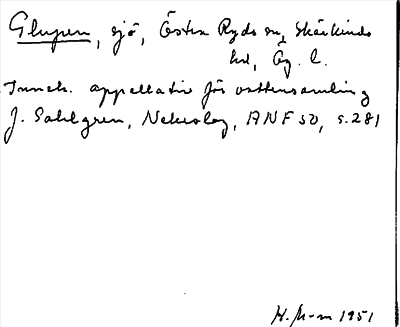 Glupen, sjö, Östra Ryds sn, Skärkinds
hd, Ög. l.
Inneh. appellativ för vattensamling
J. Sahlgren, Nekrolog, ANF 50, s. 281
H. M-m 1951